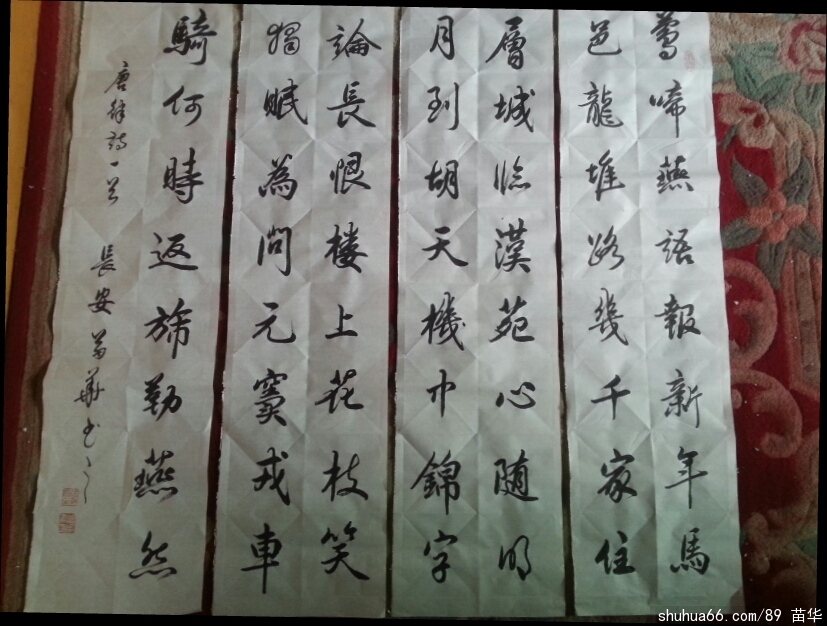 鶯啼燕語報新年馬
邑龍堆路幾千家住
層城临漢苑心随明
月到胡天機中錦字
論長恨楼上花枝笑
獨眠為問元竇戎車
騎何時返旆勒燕然
唐詩一首 長安 苗華书
shuhua66.com/89 苗华